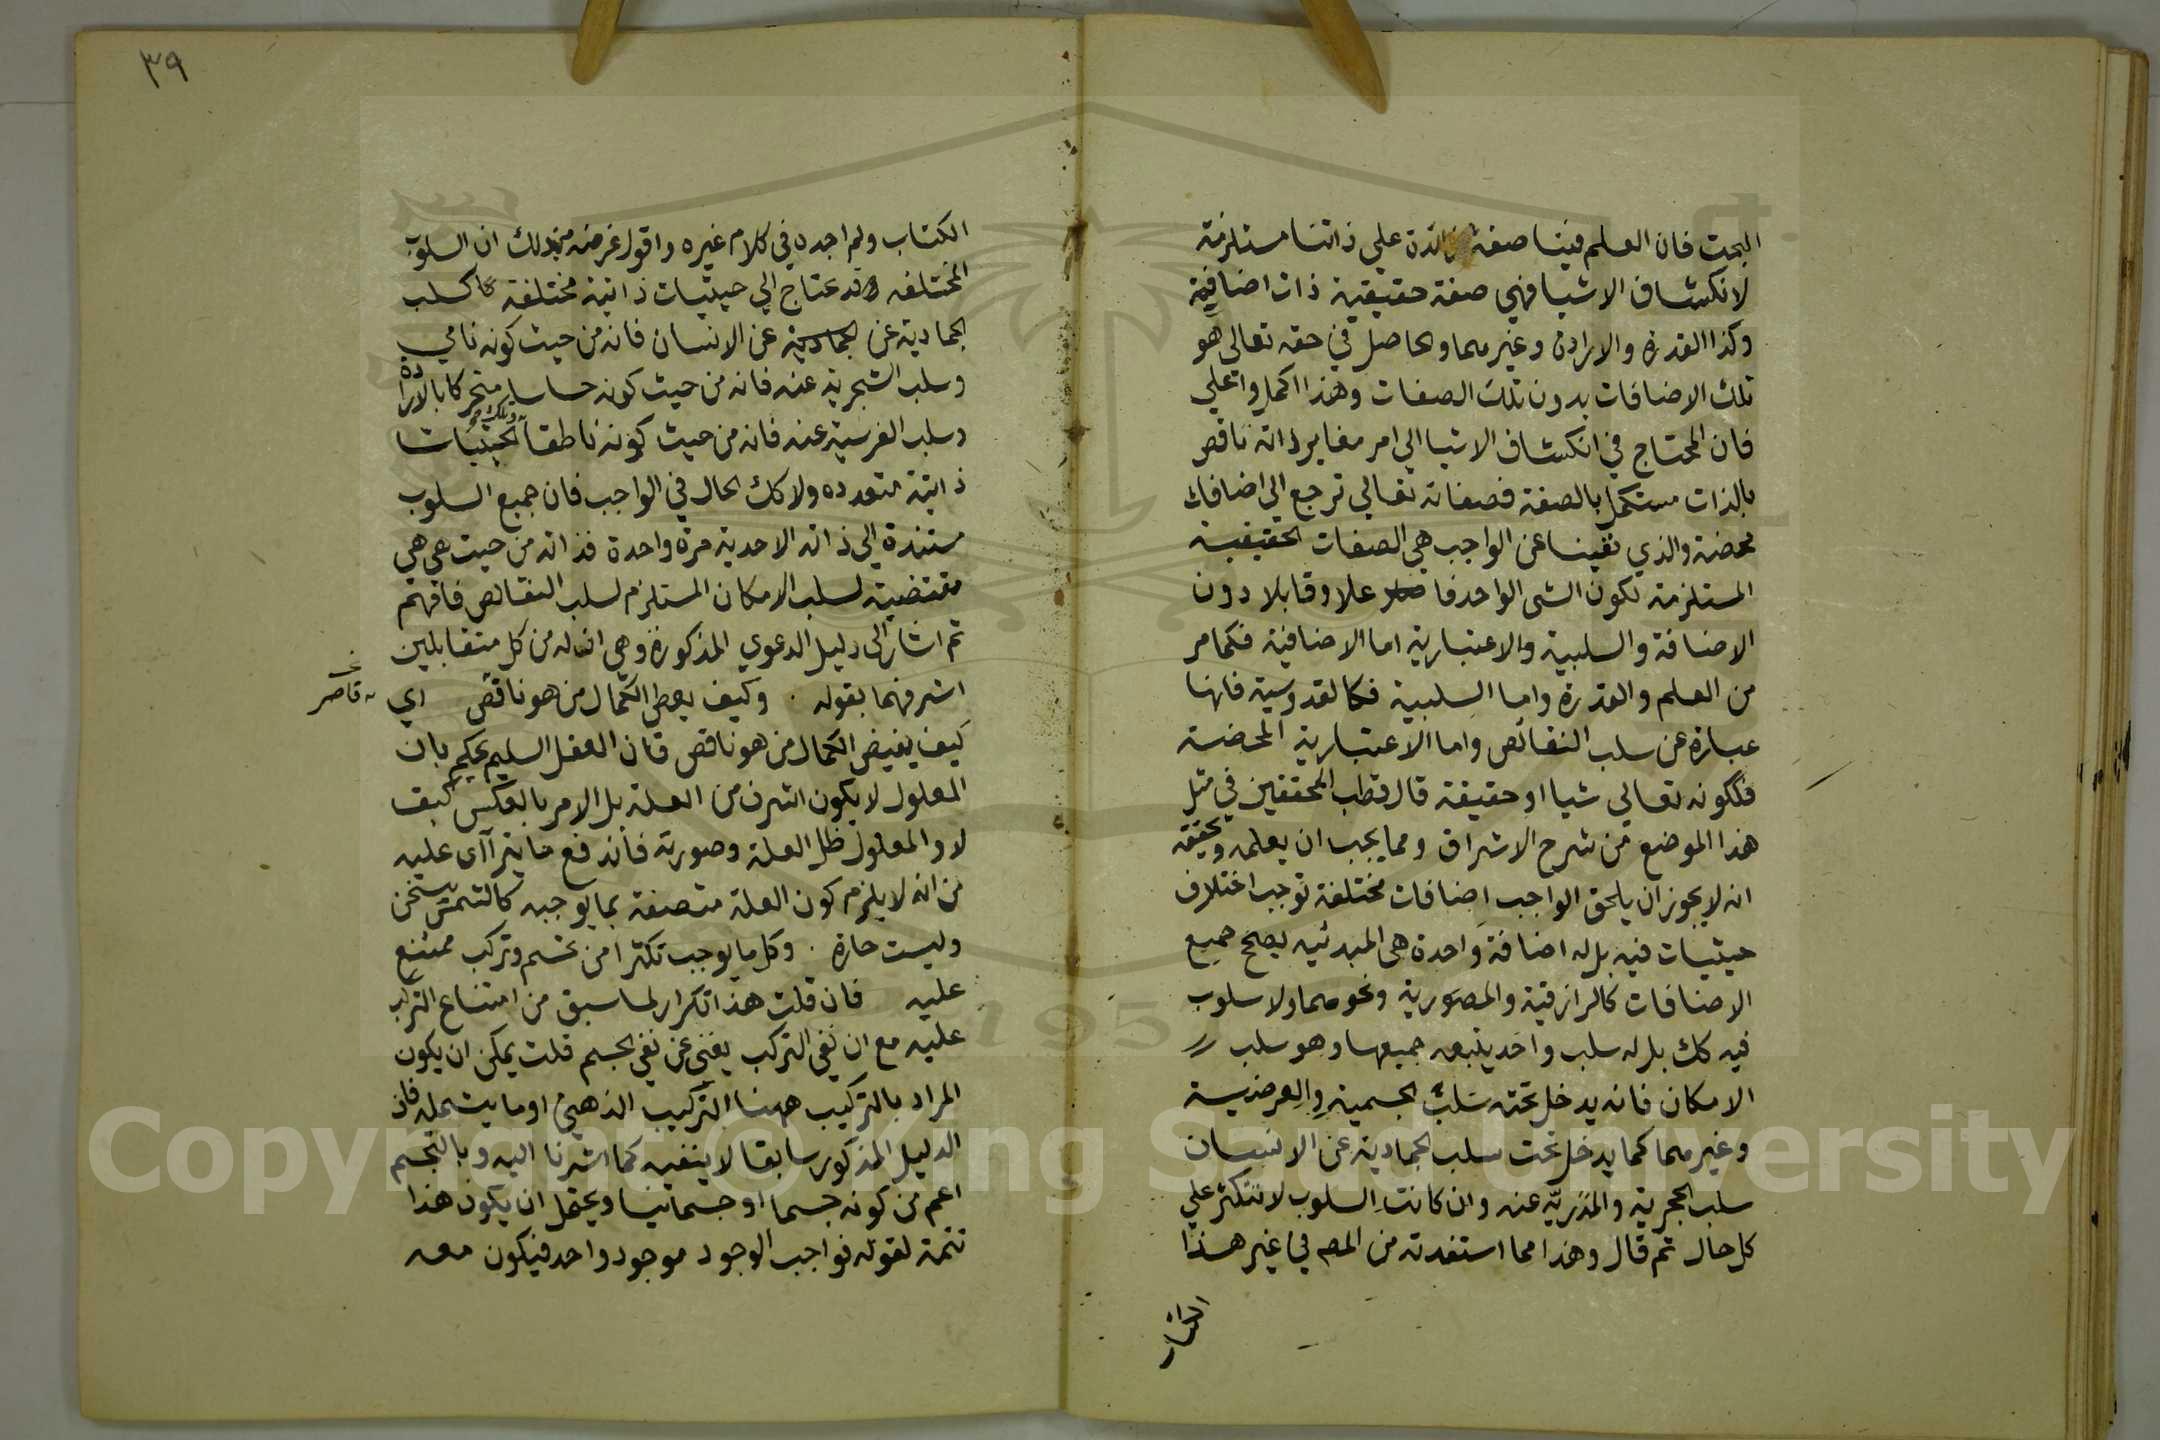 البحت فان العلم فينا صفة زائدة علي ذاتنا مستلزمة
لانكشاف الاشيا فهي صفة حقيقية ذات اضافية
وكذا القدرة والارادة وغيرهما والحاصل في حقه تعالى هو
تلك الاضافات بدون تلك الصفات وهذا اكمل واعلي
فان المحتاج في انكشاف الاشيا الي امر مغاير ذاته ناقص
بالذات مستكمل بالصفة فصفاته تعالي ترجع الي اضافات
محضة والذي نفينا عن الواجب هي الصفات الحقيقية
المستلزمة لكون الشي الواحد فاعلا وقابلا دون
الاضافة والسلبية والاعتبارية اما الاضافية فكما مر
من العلم والقدرة واما السلبية فكالقدوسية فانها
عبارة عن سلب النقائص واما الاعتبارية المحضة
فلكونه تعالي شيا او حقيقة قال قطب المحققين في مثل
هذا الموضع من شرح الاشراق ومما يجب ان يعلمه وتحققه
انه لا يجوز ان يلحق الواجب اضافات مختلفة توجب اختلاف
حيثيات فيه بل له اضافة واحدة هي المبدئيه يصحح جميع
الاضافات كالرازقية والمصورية ونحوهما ولا سلوب
فيه كك بل له سلب واحد يتبعه جميعها وهو سلب
الامكان فانه يدخل تحته سلب الجسمية والعرضية
وغيرهما كما يدخل تحت سلب الجمادية عن الانسان
سلب الحجرية والمدرية عنه وان كانت السلوب لا تتكثر علي
كل حال ثم قال وهذا مما استفدته من المص في غير هذا
الكتاب
٣٩
الكتاب ولم اجده في كلام غيره واقول غرضه من ذلك ان السلوب
المختلفه قد تحتاج الي حيثيات ذاتية مختلفة كسلب
الجمادية عن الجمادية عن الانسان فانه من حيث كونه نامي
وسلب الشجرية عنه فانه من حيث كونه حساسا متحركا بالارادة
وسلب الفرسية عنه فانه من حيث كونه ناطقا وتلك الحيثيات
ذاتية متعدده ولا كك الحال في الواجب فان جميع السلوب
مستندة الي ذاته الاحدية مرة واحدة فذاته من حيث هي هي
مقتضية لسلب الامكان المستلزم لسلب النقائص فافهم
ثم اشار الى دليل الدعوي المذكورة وهي ان له من كل متقابلين
اشرفهما بقوله . وكيف يعطي الكمال من هو ناقص اي
قاصر
كيف يفيض الكمال من هو ناقص فان العقل السليم يحكم بان
المعلول لا يكون اشرف من العلة بل الامر بالعكس كيف
لا والمعلول ظل العلة وصورته فاندفع ما يترآاى عليه
من انه لا يلزم كون العلة متصفة بما يوجبه كالشمس تسخن
وليست حارة . وكل ما يوجب تكثرا من تجسم وتركب ممتنع
عليه فان قلت هذا تكرار لما سبق من امتناع التركب
عليه مع ان نفي التركب يغني عن نفي الجسم قلت يمكن ان يكون
المراد بالتركيب ههنا التركيب الذهني او ما يشمله فان
الدليل المذكور سابقا لا ينفيه كما اشرنا اليه وبالتجسم
اعم من كونه جسما او جسمانيا ويحتمل ان يكون هذا
تتمة لقوله فواجب الوجود موجود واحد فيكون معه
Copyright © King Saud University
1957